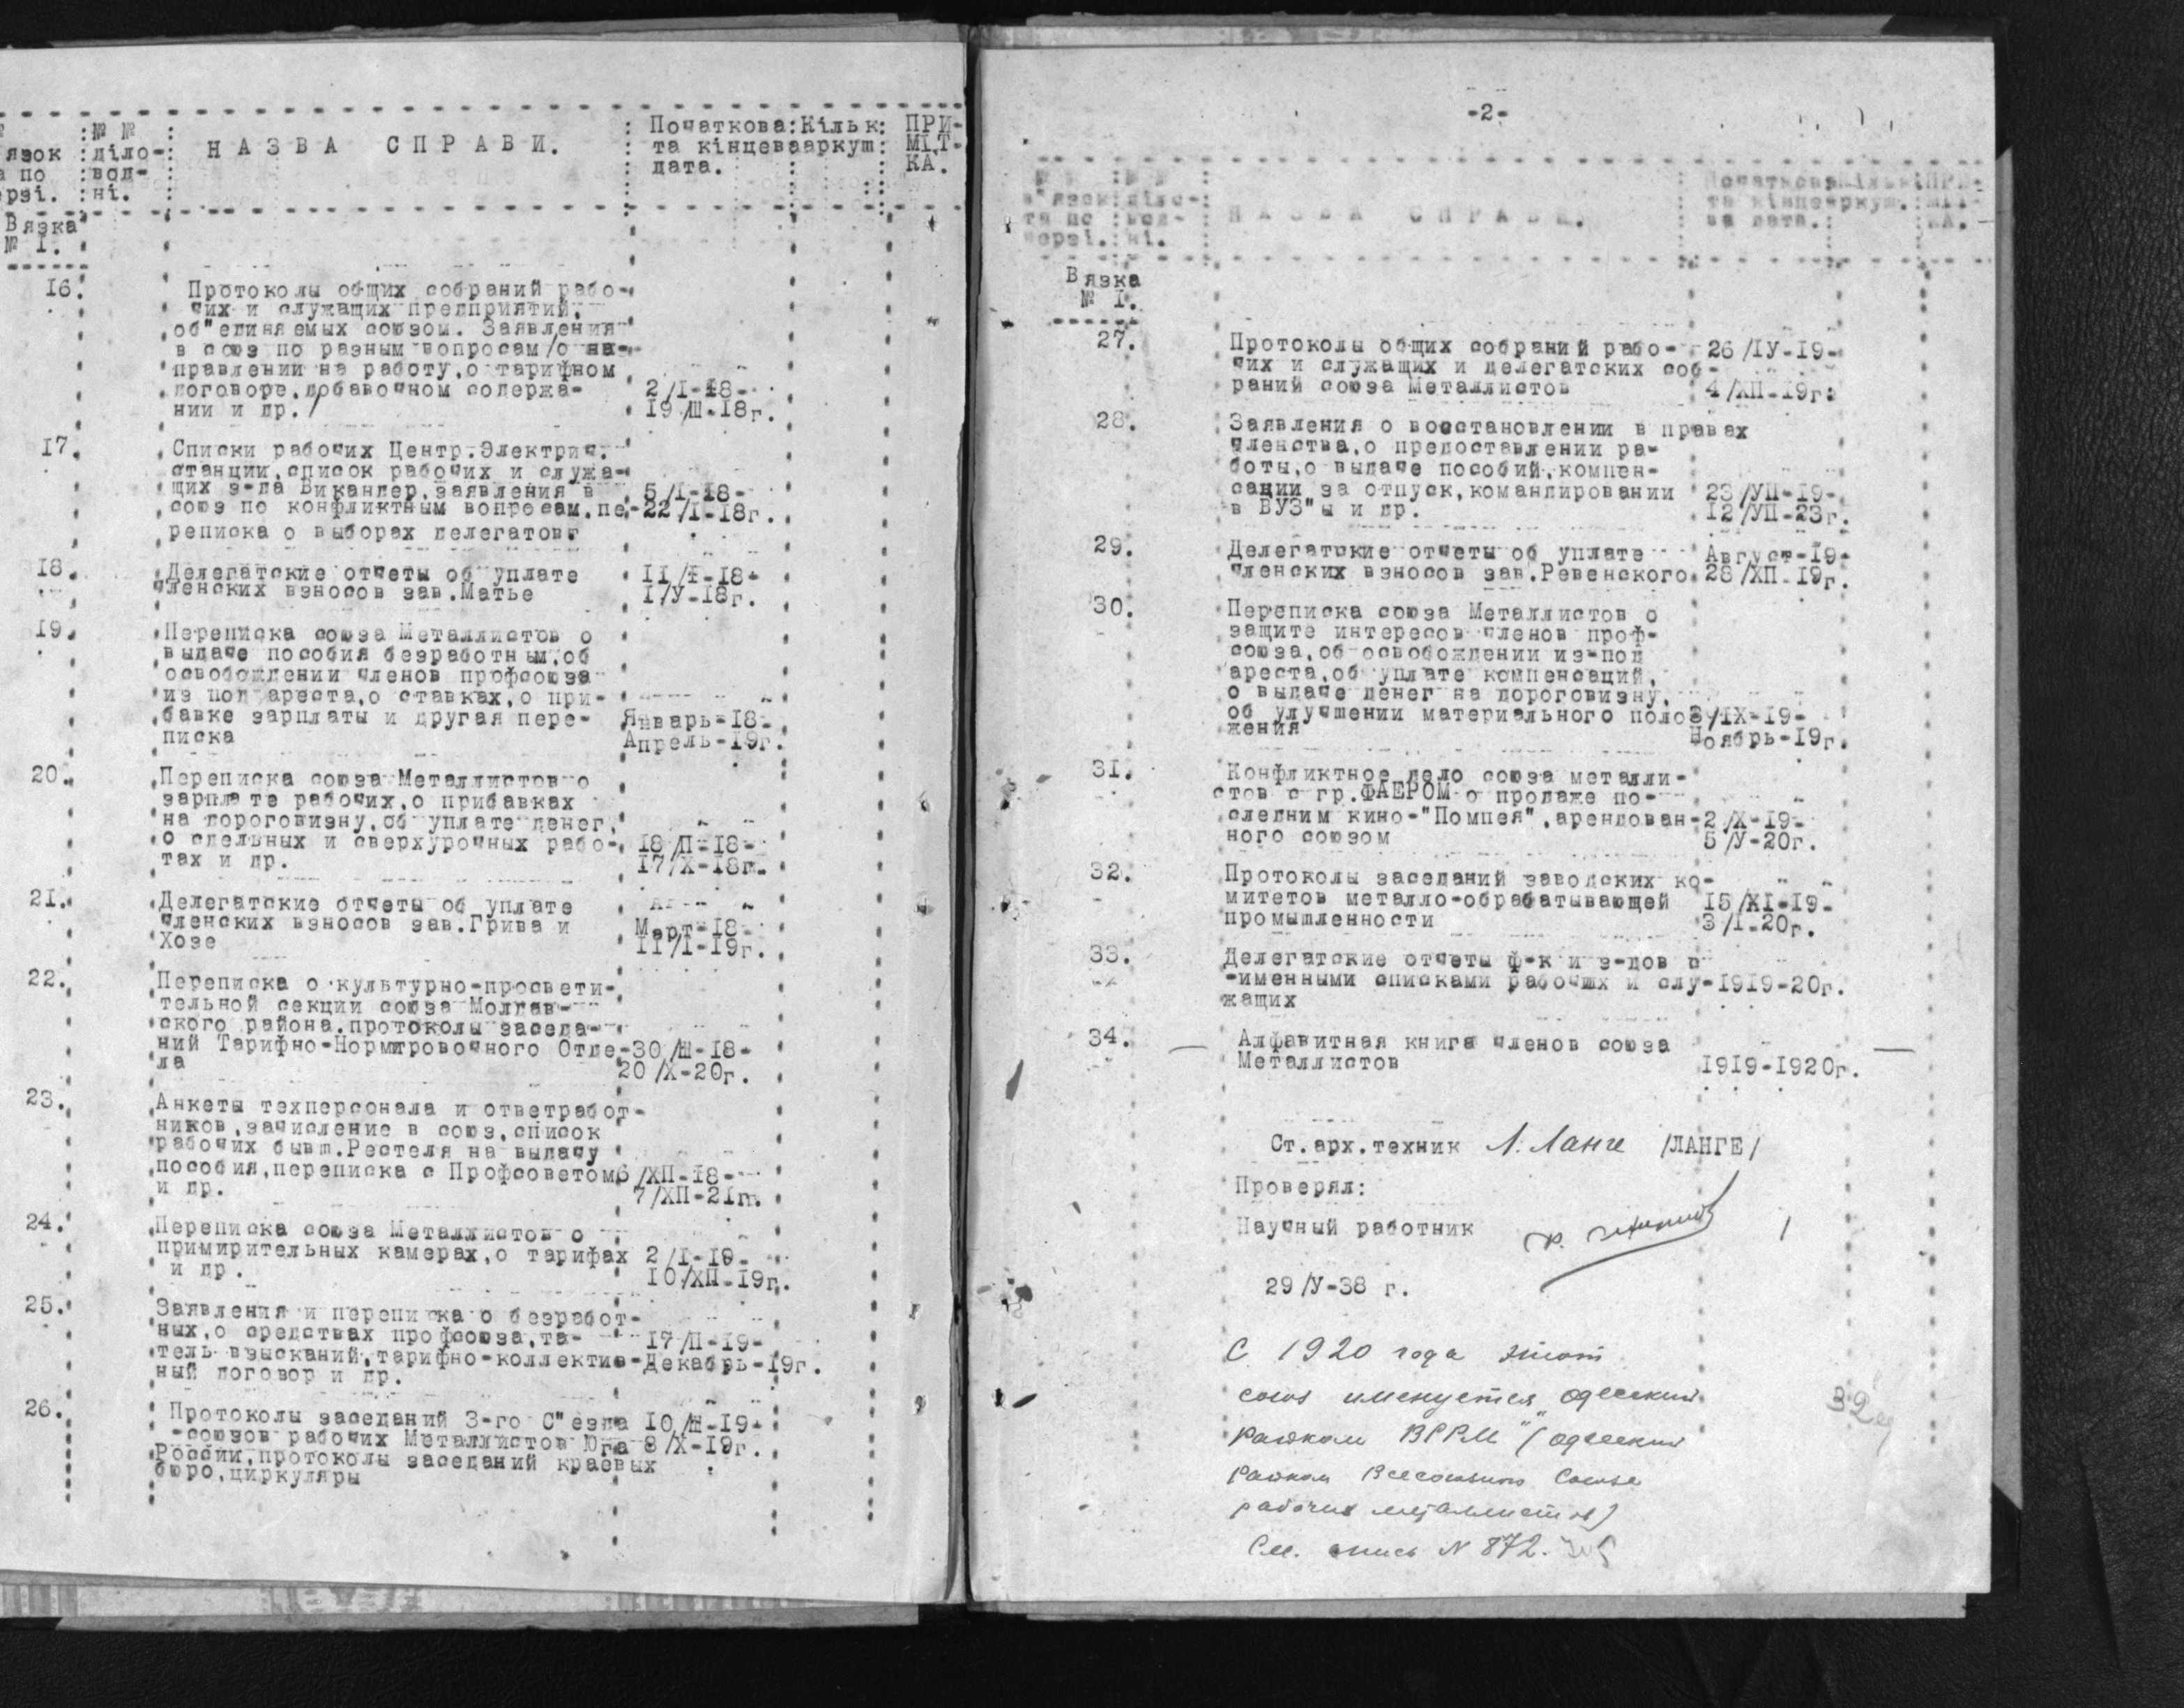 язок
по
рзі.
№ №
діло-
вод-
ні.
НАЗВА СПРАВИ.
Початкова
та кінцева
дата.
Кільк
аркуш
ПРИ-
МІТ-
КА.
Вязка
№ I.
16.
Протоколы общих собраний рабо-
чих и служащих предприятий,
об"единяемых союзом. Заявления
в союз по разным вопросам/о на-
правлении на работу,о тарифном
договоре,добавочном содержа-
нии и др./
2/I-18-
19/Ш-18г.
17.
Списки рабочих Центр.Электрич.
станции,список рабочих и служа-
щих з-да Викандер,заявления в
союз по конфликтным вопросам,пе-
реписка о выборах делегатов
5/I-18-
22/I-18г.
18.
Делегатские отчеты об уплате
членских взносов зав.Матье
II/I-18-
I/У-18г.
19.
Переписка союза Металлистов о
выдаче пособия безработным,об
освобождении членов профсоюза
из под ареста,о ставках,о при-
бавке зарплаты и другая пере-
писка
Январь-18-
Апрель-19г.
20.
Переписка союза Металлистов о
зарплате рабочих,о прибавках
на дороговизну,об уплате денег,
о сдельных и сверхурочных рабо-
тах и др.
18/П-18-
17/Х-18г.
21.
Делегатские отчеты об уплате
членских взносов зав.Грива и
Хозе
Март-18-
II/I-19г.
22.
Переписка о культурно-просвети-
тельной секции союза Молдав-
ского района,протоколы заседа-
ний Тарифно-Нормировочного Отде-
ла
30/Ш-18-
20/Х-20г.
23.
Анкеты техперсонала и ответработ-
ников,зачисление в союз,список
рабочих бывш.Рестеля на выдачу
пособия,переписка с Профсоветом
и др.
6/ХП-18-
7/ХП-21г.
24.
Переписка союза Металлистов о
примирительных камерах,о тарифах
и др.
2/I-19-
10/ХП-19г.
25.
Заявления и переписка о безработ-
ных,о средствах профсоюза,та-
тель взысканий,тарифно-коллектив-
ный договор и др.
17/П-19-
Декабрь-19г.
26.
Протоколы заседаний 3-го С"езда
-союзов рабочих Металлистов Юга
России,протоколы заседаний краевых
бюро,циркуляры
10/Ш-19-
8/Х-19г.
-2-
№ №
в"язок
та по
черзі.
№ №
діло-
вод-
ні.
НАЗВА СПРАВИ.
Початкова
та кінце-
ва дата.
Кільк
аркуш.
ПРИ-
МІТ-
КА.
Вязка
№ I.
27.
Протоколы общих собраний рабо-
чих и служащих и делегатских соб-
раний союза Металлистов
26/IУ-19-
4/ХП-19г.
28.
Заявления о восстановлении в правах
членства,о предоставлении ра-
боты,о выдаче пособий,компен-
сации за отпуск,командировании
в ВУЗ"ы и др.
23/УП-19-
12/УП-23г.
29.
Делегатские отчеты об уплате
членских взносов зав.Ревенского
Август-19-
28/ХП-19г.
30.
Переписка союза Металлистов о
защите интересов членов проф-
союза,об освобождении из-под
ареста,об уплате компенсаций,
о выдаче денег на дороговизну,
об улучшении материального поло
жения
3/IХ-19-
Ноябрь-19г.
31.
Конфликтное дело союза металли-
стов с гр.ФАЕРОМ о продаже по-
следним кино-"Помпея",арендован-
ного союзом
2/Х-19-
5/У-20г.
32.
Протоколы заседаний заводских ко-
митетов металло-обрабатывающей
промышленности
15/ХI-19-
3/I-20г.
33.
Делегатские отчеты ф-к и з-дов с
-именными списками рабочих и слу-
жащих
1919-20г.
34.
Алфавитная книга членов союза
Металлистов
1919-1920г.
Ст.арх.техник Л. Ланге /ЛАНГЕ/
Проверял:
Научный работник
29/У-38 г.
С 1920 года этот
союз именуется „Одесский
райком ВРРМ" (Одесский
райком Всесоюзного Союза
рабочих металлистов)
См. опись N 872.
32